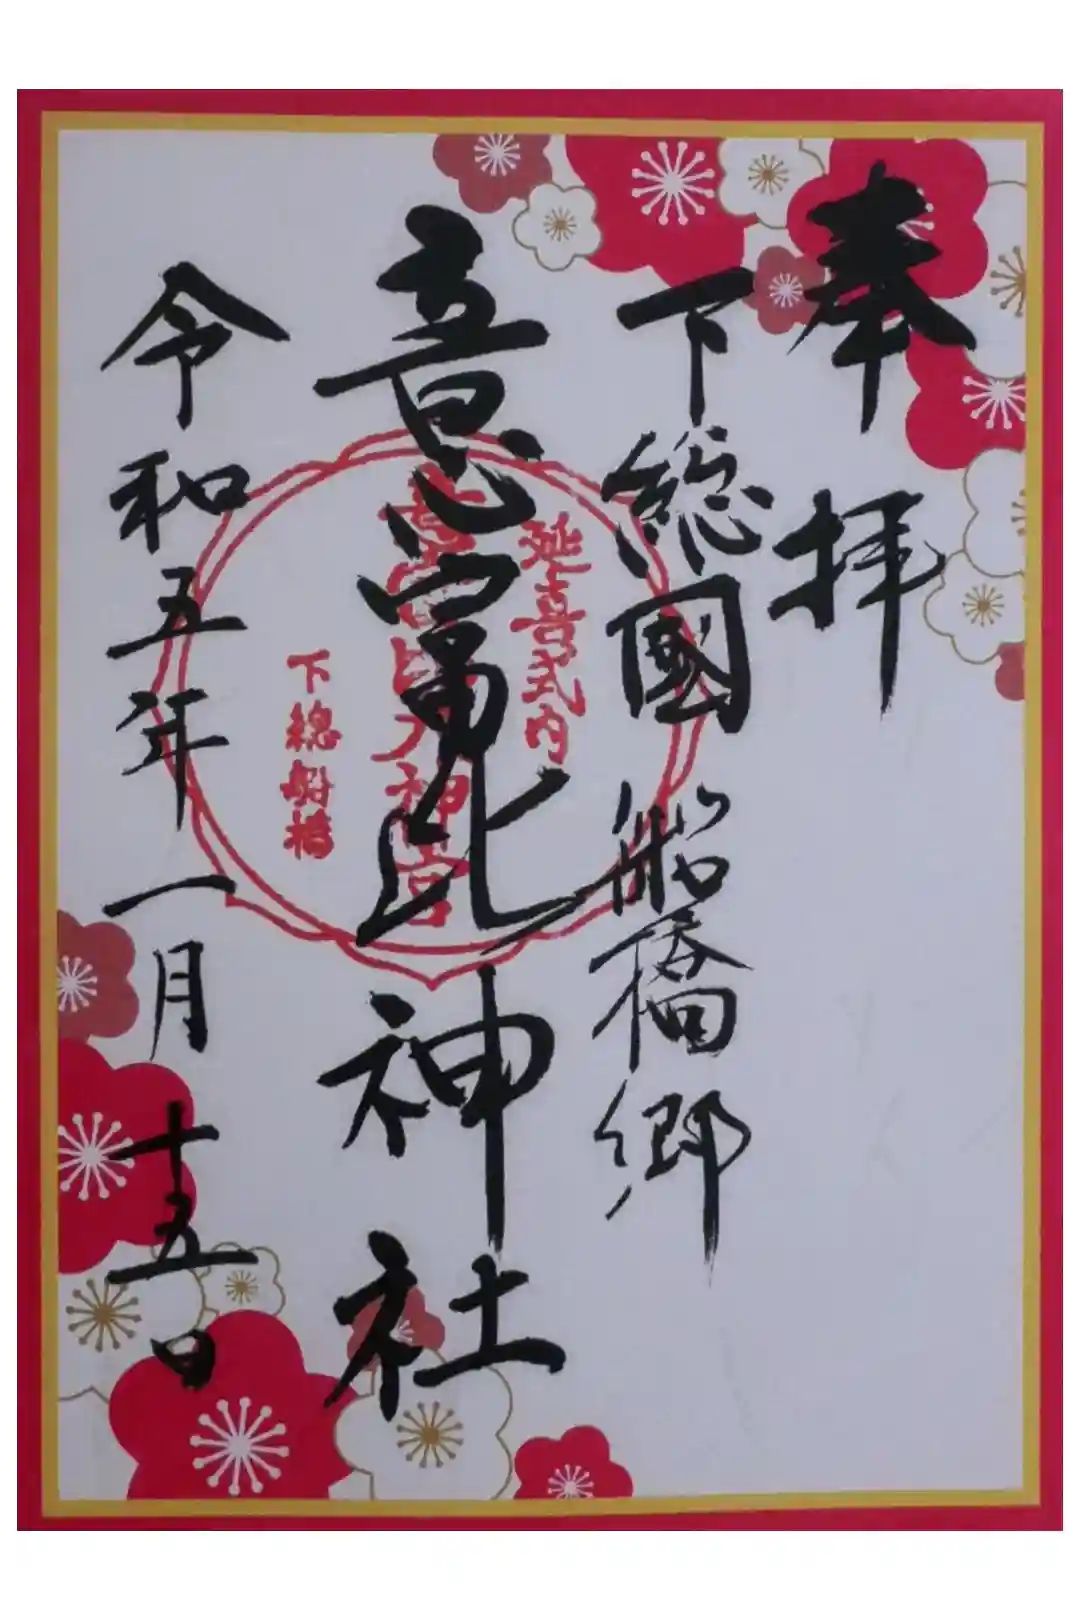 奉拝
下総國船橋郷
意富比神社
令和五年一月十五日
延喜式内
意富比大神宮
下總船橋